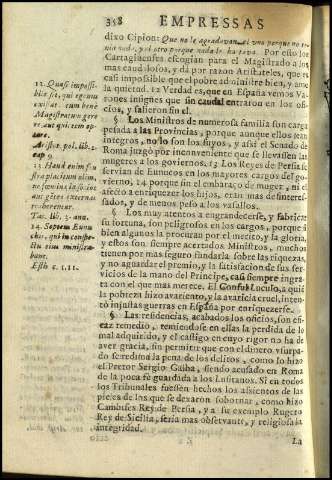 358 EMPRESSAS
dixo Cipion: Que no le agradavan, el uno porque no te-
nia nada, y el otro porque nada le hartava. Por esto los
Cartagineses escogian para el Magistrado a los
mas caudalosos, y dà por razon Aristoteles, que es
casi impossible que el pobre administre bien, y ame
la quietud. 12 Verdad es, que en España vemos Va-
rones insignes que sin caudal entraron en los ofi-
cios, y salieron sin el.
§ Los Ministros de numerosa familia son carga
pesada a las Provincias, porque aunque ellos sean
integros, no lo son los suyos, y assi el Senado de
Roma juzgò por inconveniente que se llevassen las
mugeres a los goviernos. 13 Los Reyes de Persia se
servian de Eunucos en los mayores cargos del go-
vierno, 14 porque sin el embaraço de muger, ni el
afecto a enriquezer los hijos, eran mas desinteres-
sados, y de menos peso a los vasallos.
§ Los muy atentos a engrandecerse, y fabricar
su fortuna, son peligrosos en los cargos, porque si
bien algunos la procuran por el merito, y la gloria,
y estos son siempre acertados Ministros, muchos
tienen por mas seguro fundarla sobre las riquezas,
y no aguardar el premio, y la satisfacion de sus ser-
vicios de la mano del Principe, casi siempre ingra-
ta con el que mas merece. El Consul Luculo, a quien
la pobreza hizo avariento, y la avaricia cruel, inten-
tò injustas guerras en España por enriquezerse.
§ Las residencias, acabados los oficios, son efi-
caz remedio, temiendose en ellas la perdida de lo
mal adquirido, y el castigo en cuyo rigor no ha de
aver gracia, sin permitir que con el dinero usurpa-
do se redima la pena de los delitos, como lo hizo
el Pretor Sergio Galba, siendo acusado en Roma
de la poca fè guardada a los Lusitanos. Si en todos
los Tribunales fuessen hechos los assientos de las
pieles de los que se dexaron sobornar, como hizo
Cambises Rey de Persia, y a su exemplo Rugero
Rey de Sicilia, seria mas observante, y religiosa la
integridad.
La
12 Quasi impossi-
bile sit, qui egenus
existat, eum bene
Magistratum gere-
re, aut quietem op-
tare.
Aristot. pol. lib. 2.
cap 9.
13 Haud enim fru-
stra placitum olim,
ne foeminae in socios
aut gentes externas
traherentur.
Tac. lib. 3. ann.
14 Septem Eunu-
chis, qui in conspe-
ctu eius ministra-
bant.
Esth. c. 1.11.